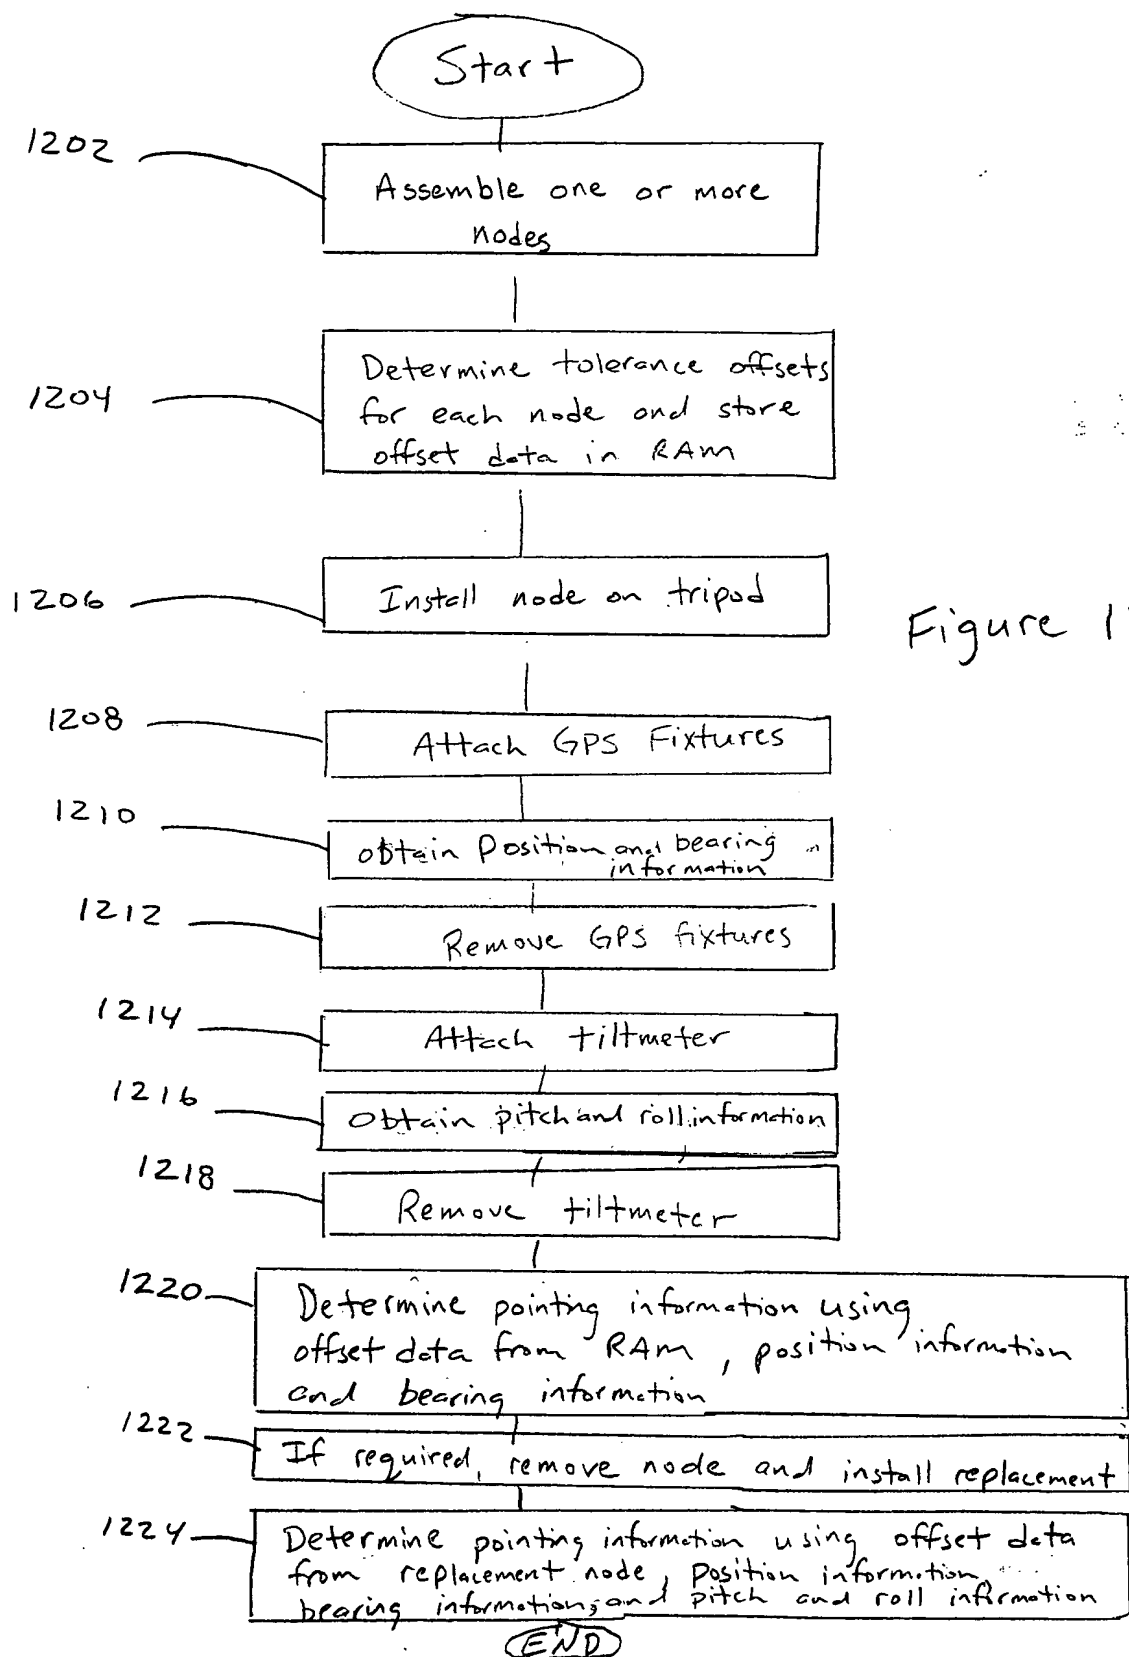 Start
1202
Assemble one or more
nodes
1204
Determine tolerance offsets
for each node and store
offset data in RAm
1206
Install node on tripod
Figure 1
1208
Attach GPS Fixtures
1210
obtain Position and bearing
information
1212
Remove GPS fixtures
1214
Attach tiltmeter
1216
Obtain pitch and roll information
1218
Remove tiltmeter
1220
Determine pointing information using
offset data from RAm, position information
and bearing information
1222
If required, remove node and install replacement
1224
Determine pointing information using offset data
from replacement node, position information,
bearing information, and pitch and roll information
END